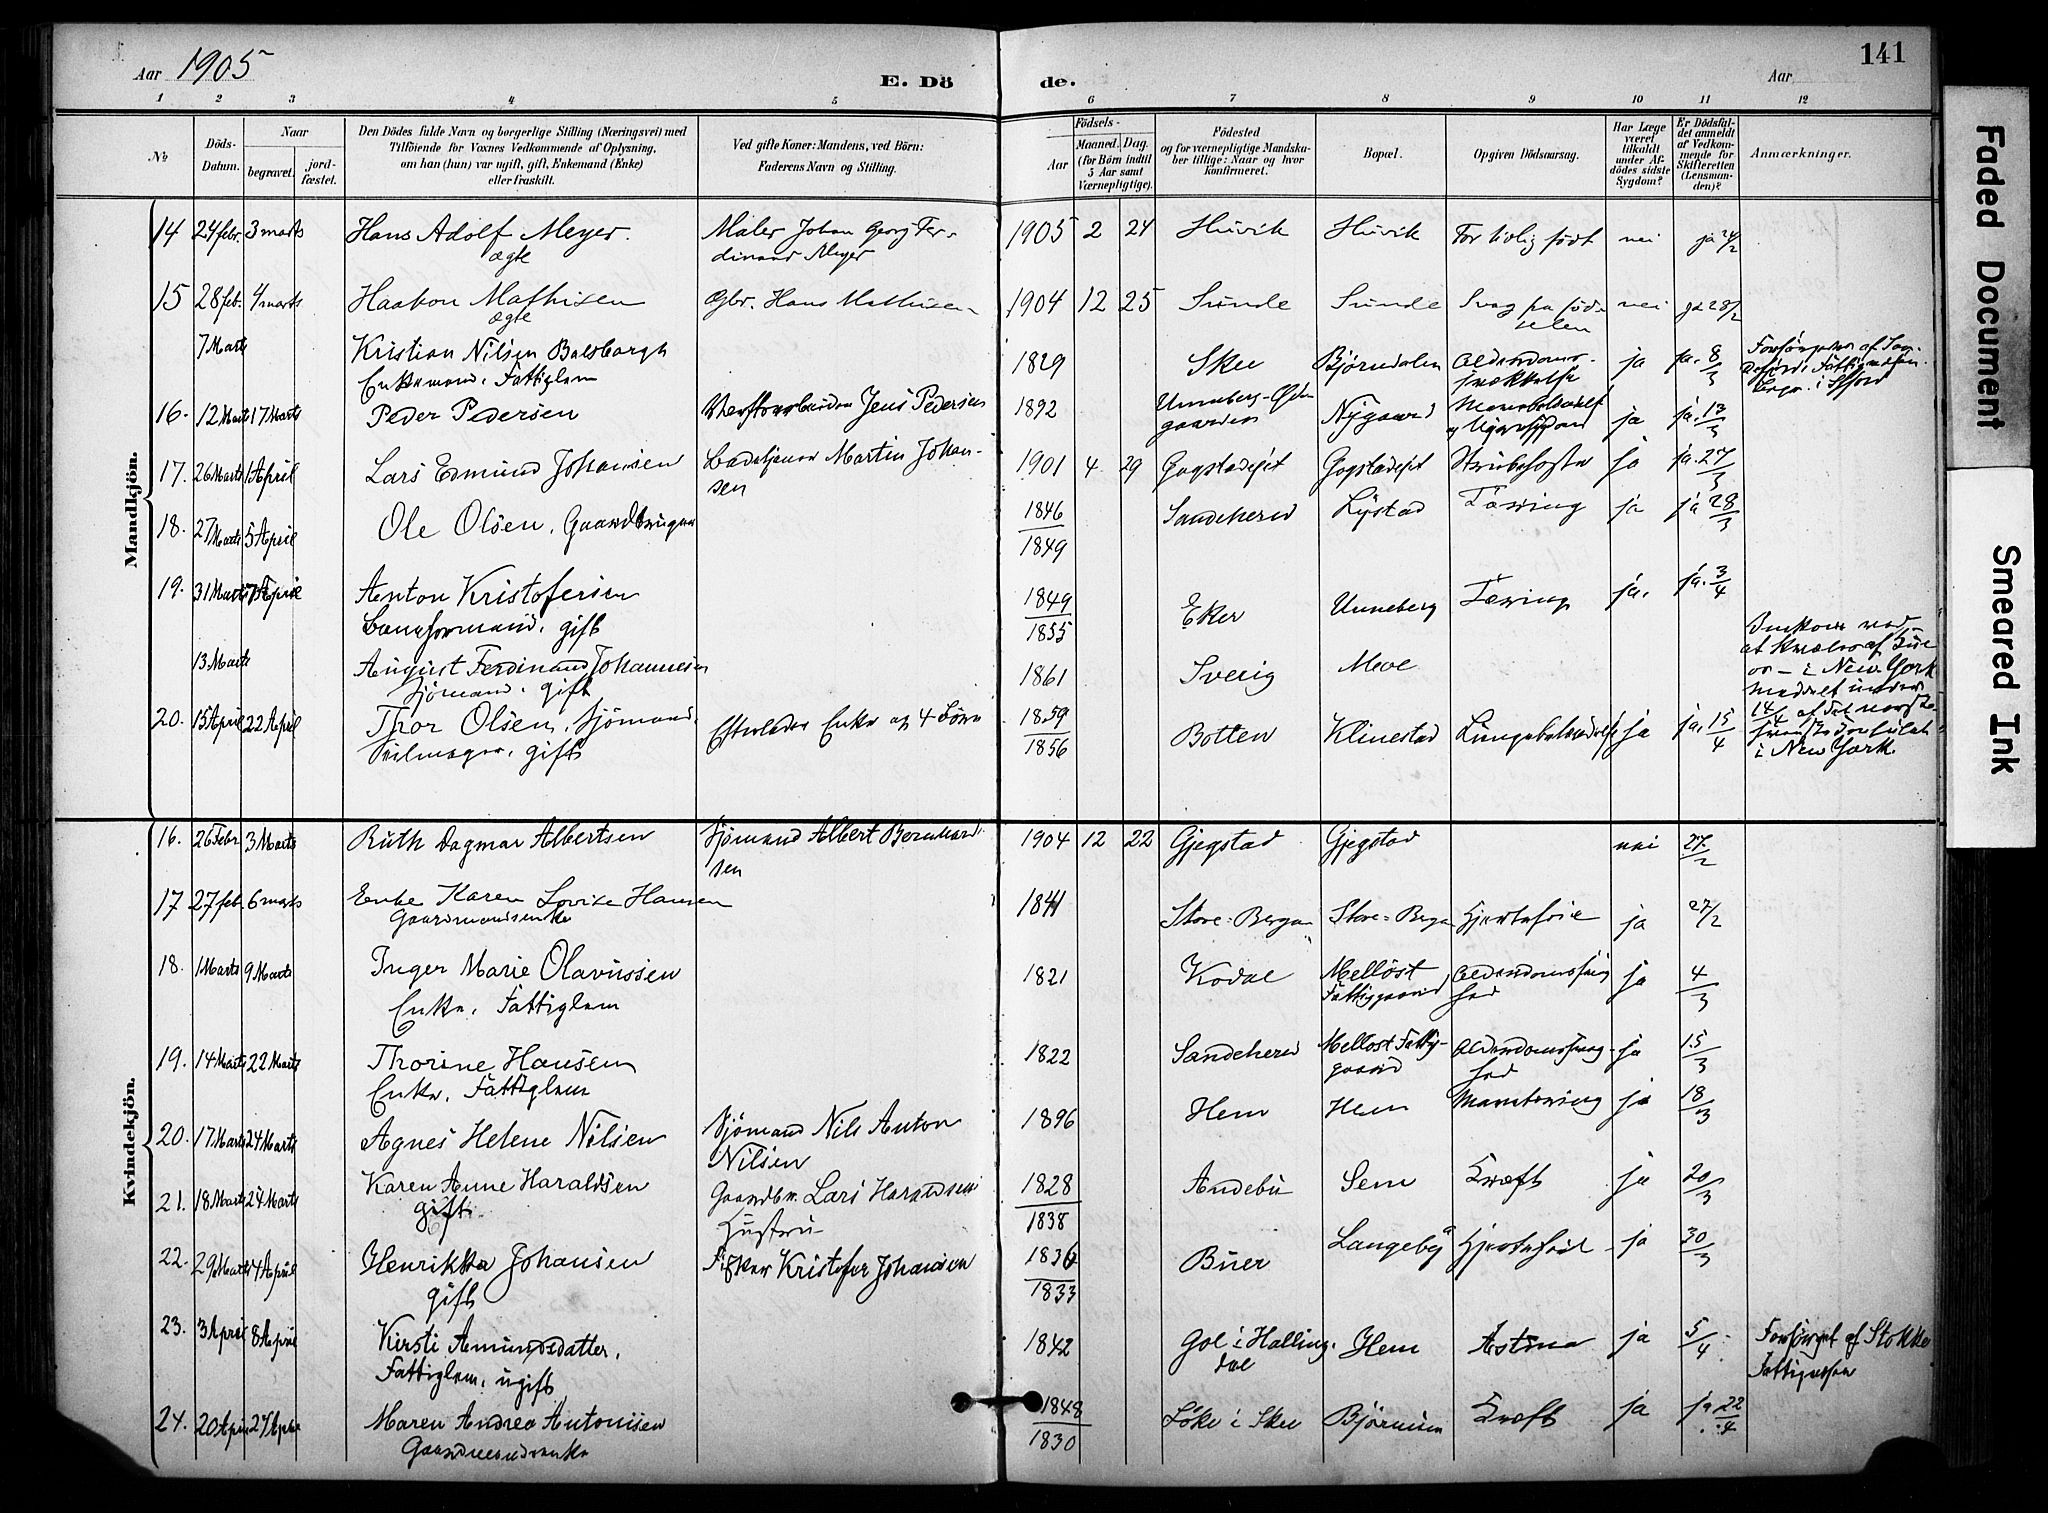 Aar 1905
E. Döde.
Aar
141
1 2 3 4 5 6 7 8 9 10 11 12
No
Döds-Datum.
Naar
begravet.
jord-fæstet.
Den Dödes fulde Navn og borgerlige Stilling (Næringsvei) med
Tilföiende for Voxnes Vedkommende af Oplysning,
om han (hun) var ugift, gift, Enkemand (Enke)
eller fraskilt.
Ved gifte Koner: Mandens, ved Börn:
Faderens Navn og Stilling.
Födsels-
Aar
Maaned. Dag.
(for Börn indtil
5 Aar samt
Værnepligtige).
Födested
og for værnepligtige Mandska-
ber tillige: Naar og hvor
konfirmeret.
Bopæl.
Opgiven Dödsaarsag.
Har Læge
været
tilkaldt
under Af-
dödes sidste
Sygdom?
Er Dödsfal-
det anmeldt
af Vedkom-
mende for
Skifteretten
(Lensman-
den)?
Anmærkninger.
Mandkjön.
14 24 febr. 3 marts Hans Adolf Meyer. Maler Johan Georg Fer- 1905 2 24 Huvik Huvik For tidlig født nei ja 24/2
ægte dinand Meyer
15 28 feb. 4 marts Haakon Mathisen Gbr. Hans Mathisen 1904 12 25 Sunde Sunde Svag fra fød- nei ja 28/2
ægte selen
7 Marts Kristian Nilsen 1829 Skee Bjørndalen Alderdoms- ja ja. 8/3
Enkemand. Fattiglem svækkelse
16. 12 Marts 17 Marts Peder Pedersen Jens Pedersen 1892 Unneberg-Ød- Nygaard ja ja. 13/3
gaarden
17. 26 Marts 1 April Lars Edmund Johansen Martin Johan- 1901 4 29 Gogstadejet Gogstadejet Strubehoste ja ja. 27/3
sen
18. 27 Marts 5 April Ole Olsen, Gaardbruger 1846 Sandeherred Lystad Tæring ja ja 28/3
1849
19. 31 Marts April Anton Kristofersen 1849 Eker Unneberg Tæring ja. ja. 3/4
gift 1855
13 Marts August Ferdinand Johannesen 1861 Sverig Moe
Sjømand. gift
i New York
20. 15 April 22 April Thor Olsen, Sjømand Efterlader Enke og 4 Børn 1859 Botten Klinestad ja ja. 15/4
Seilmager, gift 1856
i New York.
Kvindekjön.
16. 26 Febr 3 Marts Ruth Dagmar Albertsen Sjømand Albert Bernhard- 1904 12 22 Gjegstad Gjegstad nei 27/2
sen
17 27 feb. 6 marts Enke Karen Lovise Hansen 1841 Store-Bergan Store-Bergan Hjertefeil ja 27/2
Gaardmandsenke
18. 1 Marts 9 Marts Inger Marie Olavussen 1821 Kodal Melløst Alderdomssvag ja 4/3
Enke, Fattiglem Fattiggaard hed
19. 14 Marts 22 Marts Thorine Hansen 1822 Sandeherred Melløst Fattig- Alderdomssvag- ja 15/3
Enke, Fattiglem gaard hed
20. 17 Marts 24 Marts Agnes Helene Nilsen Sjømand Nils Anton 1896 Hem Hem ja 18/3
Nilsen
21. 18 Marts 24 Marts Karen Anne Haraldsen Gaardbr. Lars Haraldsen 1828 Andebu Sem Kræft ja 20/3
gift Hustru 1838
22. 29 Marts 4 April Henrikka Johansen Fisker Kristofer Johansen 1836 Buer Langeby Hjertefeil ja 30/3
gift 1833
23. 3 April 8 April Kirsti Amundsdatter, 1842 Gol i Halling- Hem Astma ja 5/4 Forsørget af Stokke
Fattiglem, ugift dal Fattigvæsen
24. 20 April 27 April Maren Andrea Antonisen 1848 Løke i Skee Bjørnum Kræft ja ja 22/4
Gaardmandsenke 1830
Faded Document
Smeared Ink